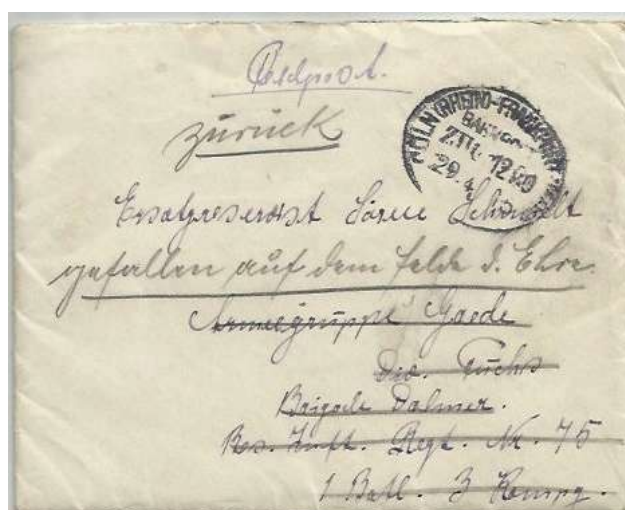 Feldpost.
zurück
KÖLN (RHEIN)-FRANKFURT
BAHNPOST
ZUG 1280
29.4
Ersatzreservist Sören Schmidt
gefallen auf dem Felde d. Ehre.
Armeegruppe Gaede
Div. Fuchs
Brigade Dalmer.
Res. Inft. Regt. Nr. 75
1 Batl. 3 Kompg.